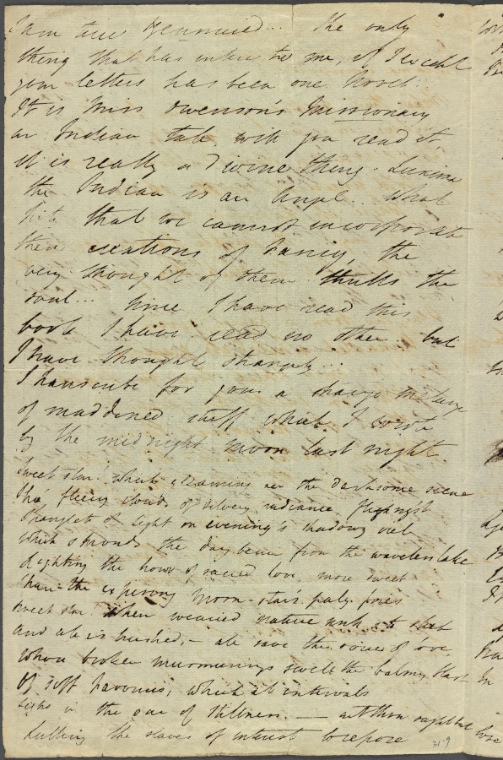 I am
thing that has interested me, if I except
your letters has been one Novel.
It is Miss Owenson's Missionary
an Indian tale, will you read it,
it is really a divine thing. Luxima
the Indian is an Angel. What
pity that we cannot incorporate
these creations of Fancy, the
very thought of them thrills the
soul... Since I have read this
book I have read no other but
I have thought strangely..
I transcribe for you a strange melange
of maddened stuff which I wrote
by the midnight moon last night.
Sweet star! which gleaming oer the darksome scene
Thro' fleecy clouds of silvery radiance flyingst
Spanglet of light on evening's shadowy veil
Which shrouds the day beam from the waveless lake
Lighting the hour of sacred love, more sweet
Than the expiring morn-star's paly fires
Sweet star! When wearied nature sinks to sleep
And all is hushed,— all save the voice of Love
Whose broken murmurings swell the balmy blast
Of soft Favonius, which at intervals
Sighs in the ear of stillness. — art thou ought but
Lulling the slaves of interest to repose